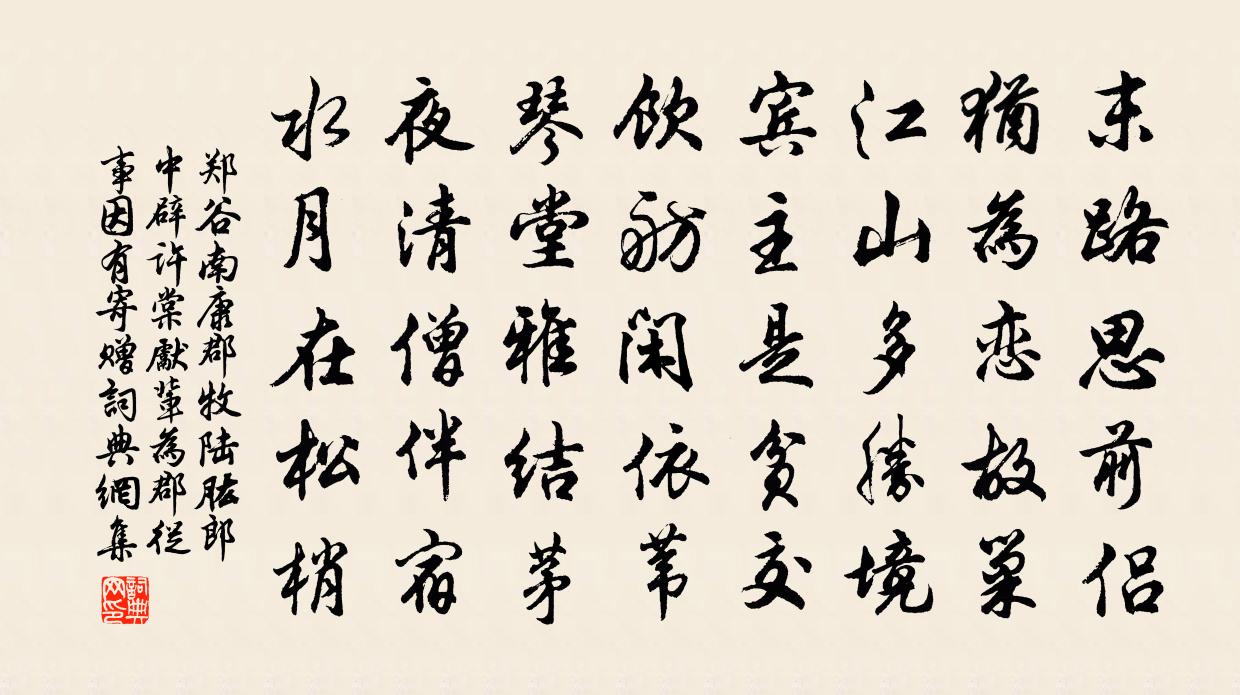 末路思前侣
犹為恋故巢
江山多勝境
宾主是贫交
飲舫闲依苇
琴堂雅结茅
夜清僧伴宿
水月在松梢
郑谷南康郡牧陆肱郎
中辟许棠獻輩為郡從
事因有寄赠詞典網集
詞典网印